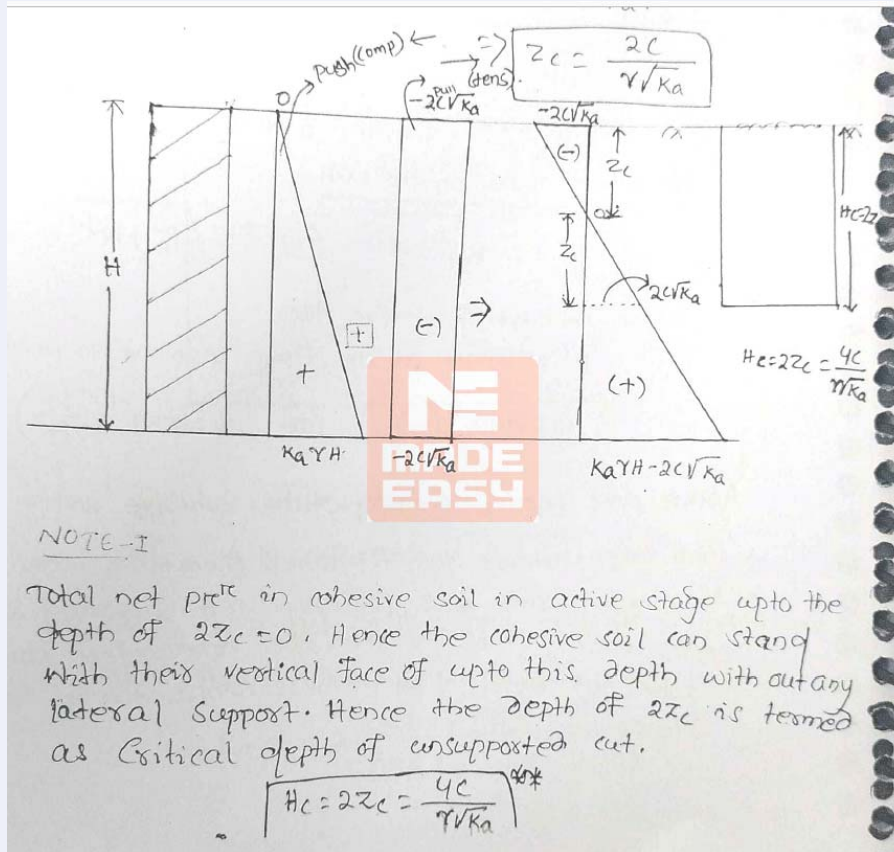 Push(comp) ←
=> Zc = 2C / γ√Ka
→ (tens).
Pull
-2C√Ka
-2C√Ka
O
(-)
Zc
H
O
Zc
Hc=2Z
2C√Ka
+
(-)
=>
+
(+)
Hc=2Zc = 4C / γ√Ka
KaγH
-2C√Ka
KaγH-2C√Ka
ME
MADE
EASY
NOTE-I
Total net prere in cohesive soil in active stage upto the
depth of 2Zc =0. Hence the cohesive soil can stand
With their vertical face of upto this depth with out any
lateral support. Hence the depth of 2Zc is termed
as Critical depth of unsupported cut.
Hc = 2Zc = 4C / γ√Ka ***